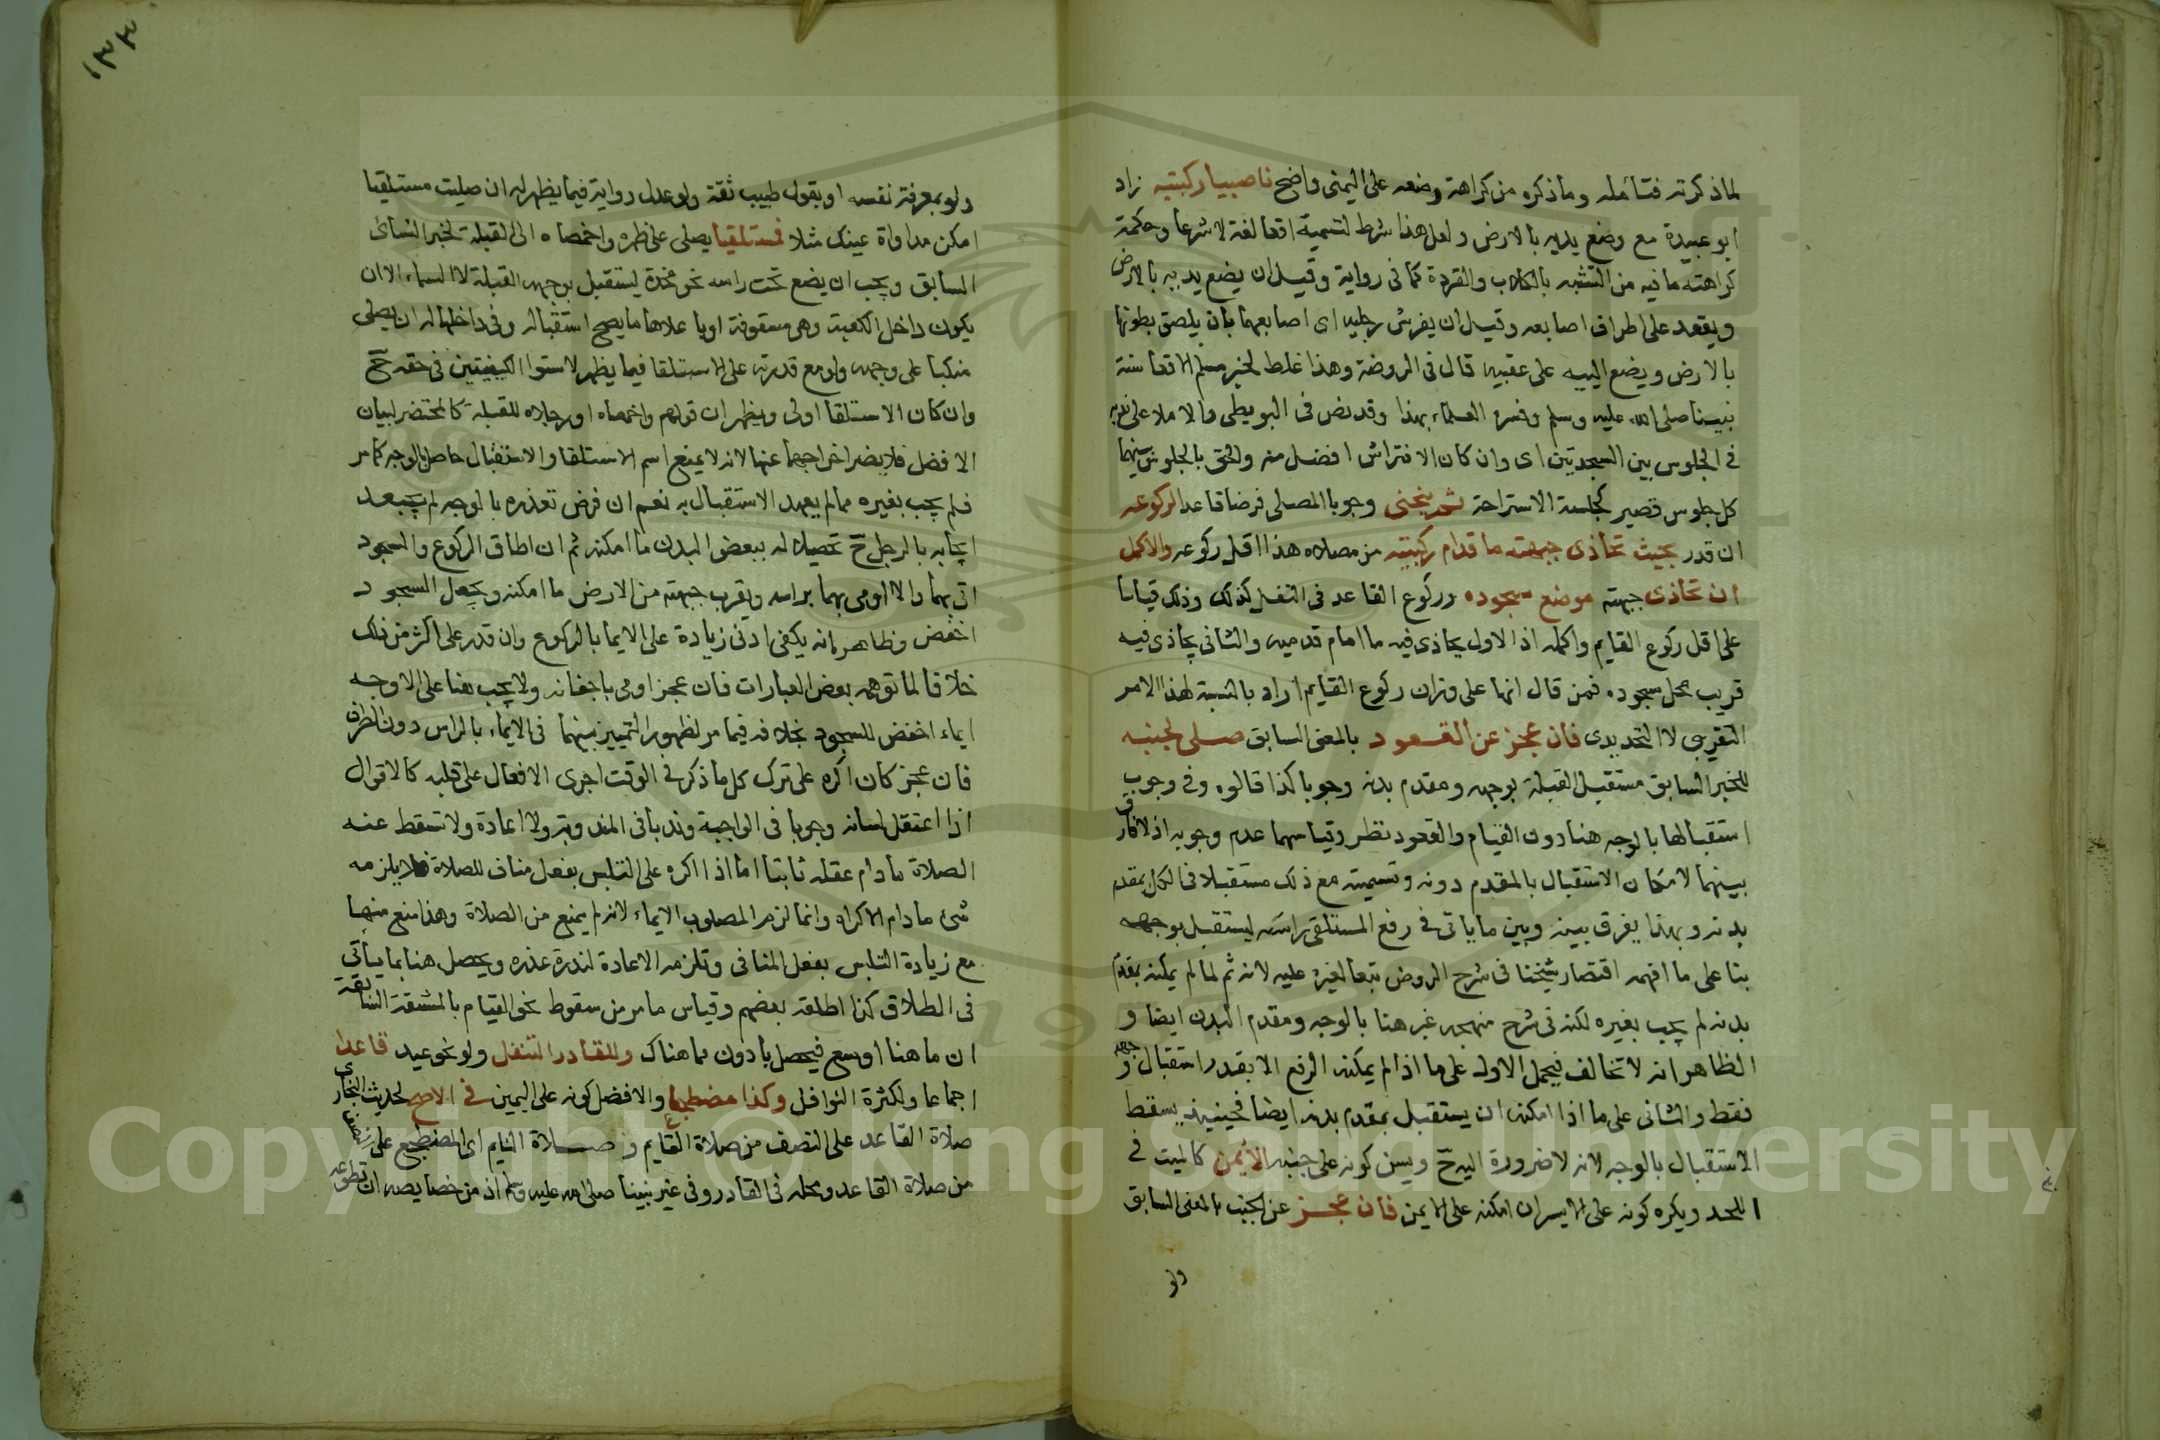 لما ذكرته فتأمله وما ذكره من كراهة وضعه على اليمنى واضح ناصبا ركبتيه زاد
ابو عبيدة مع وضع يديه بالارض ولعل هذا شرط لتسمية اقعا لغة لا شرعا وحكمة
كراهته ما فيه من التشبه بالكلاب والقردة كما في رواية وقيل ان يضع يديه بالارض
ويقعد على اطراف اصابعه وقيل ان يفرش رجليه اى اصابعهما بان يلصق بطونها
بالارض ويضع الييه على عقبيه قال في الروضة وهذا غلط لخبر مسلم الاقعا سنة
نبينا صلى الله عليه وسلم وفسره العلماء بهذا وقد نص في البويطي والاملا على ندبه
في الجلوس بين السجدتين اى وان كان الافتراش افضل منه والحق بالجلوس بينهما
كل جلوس قصير كجلسة الاستراحة ثم ينحنى وجوبا المصلى فرضا قاعدا لركوعه
ان قدر بحيث تحاذى جبهته ما قدام ركبتيه من مصلاه هذا اقل ركوعه والاكمل
ان تحاذى جبهته موضع سجوده وركوع القاعد في النفل كذلك وذلك قياسا
على اقل ركوع القايم واكمله اذ الاول يحاذى فيه ما امام قدميه والثانى يحاذى فيه
قريب محل سجوده فمن قال انهما على وزان ركوع القايم اراد بالنسبة لهذا الامر
التقريبى لا التحديدى فان عجز عن القعود بالمعنى السابق صلى لجنبه
للخبر السابق مستقبل القبلة بوجهه ومقدم بدنه وجوبا كذا قالوه وفي وجوب
استقبالها بالوجه هنا دون القيام والقعود نظر وقياسهما عدم وجوبه اذ لا فارق
بينهما لامكان الاستقبال بالمقدم دونه وتسميته مع ذلك مستقبلا في الكل بمقدم
بدنه وبهذا يفرق بينه وبين ما ياتى في رفع المستلقى راسه ليستقبل بوجهه
بنا على ما افهمه اقتصار شيخنا في شرح الروض تبعا لغيره عليه لانه ثم لما لم يمكنه بمقدم
بدنه لم يجب بغيره لكنه في شرح منهجه عبر هنا بالوجه ومقدم البدن ايضا و
الظاهر انه لا تخالف فيحمل الاول على ما اذا لم يمكنه الرفع الا بقدر استقبال وجهه
فقط والثانى على ما اذا امكنه ان يستقبل بمقدم بدنه ايضا فحينيذ يسقط
الاستقبال بالوجه لانه لا ضرورة اليه ح ويسن كونه على جنبه الايمن كالميت في
اللحد ويكره كونه على الايسر ان امكنه على الايمن فان عجز عن الجنب بالمعنى السابق
ولو
١٣٣
ولو بمعرفة نفسه او بقول طبيب ثقة ولو عدل رواية فيما يظهر له ان صليت مستلقيا
امكن مداواة عينك مثلا فمستلقيا يصلى على ظهره واخمصاه الى القبلة لخبر النسائ
السابق ويجب ان يضع تحت راسه نحو مخدة ليستقبل بوجهه القبلة لا السماء الا ان
يكون داخل الكعبة وهي مسقوفة او باعلاها ما يصح استقباله وفي داخلها له ان يصلى
منكبا على وجهه ولو مع قدرته على الاستلقا فيما يظهر لاستوا الكيفيتين في حقه ح
وان كان الاستلقا اولى ويظهر ان قولهم واخمصاه او رجلاه للقبلة كالمحتضر لبيان
الافضل فلا يضر اخراجهما عنها لانه لا يمنع اسم الاستلقا والاستقبال حاصل بالوجه كما مر
فلم يجب بغيره مما لم يعهد الاستقبال به نعم ان فرض تعذره بالوجه لم يبعد
ايجابه بالرجل ح تحصيلا له ببعض البدن ما امكنه ثم ان اطاق الركوع والسجود
اتى بهما والا اومى بهما براسه ويقرب جبهته من الارض ما امكنه ويجعل السجود
اخفض وظاهر انه يكفى ادنى زيادة على الايما بالركوع وان قدر على اكثر من ذلك
خلافا لما توهمه بعض العبارات فان عجز اومى باجفانه ولا يجب هنا على الاوجه
ايماء اخفض للسجود بخلافه فيما مر لظهور التمييز بينهما في الايماء بالراس دون الطرف
فان عجز كان اكره على ترك كل ما ذكر في الوقت اجرى الافعال على قلبه كالاقوال
اذا اعتقل لسانه وجوبا في الواجبة وندبا في المندوبة ولا اعادة ولا تسقط عنه
الصلاة ما دام عقله ثابتا اما اذا اكره على التلبس بفعل مناف للصلاة فلا يلزمه
شئ ما دام الاكراه وانما لزم المصلوب الايماء لانه لم يمنع من الصلاة وهذا منع منها
مع زيادة التلبس بفعل المنافى وتلزمه الاعادة لندرة عذره ويحصل هنا بما يأتى
في الطلاق كذا اطلقه بعضهم وقياس ما مر من سقوط نحو القيام بالمشقة السابقة
ان ما هنا اوسع فيحصل بادون مما هناك وللقادر التنفل ولو نحو عيد قاعدا
اجماعا ولكثرة النوافل وكذا مضطجعا والافضل كونه على اليمين في الاصح لحديث البخارى
صلاة القاعد على النصف من صلاة القايم وصلاة النايم اى المضطجع على نصف
من صلاة القاعد ومحله في القادر وفي غير نبينا صلى الله عليه وسلم اذ من خصايصه ان تطوعه
Copyright © King Saud University